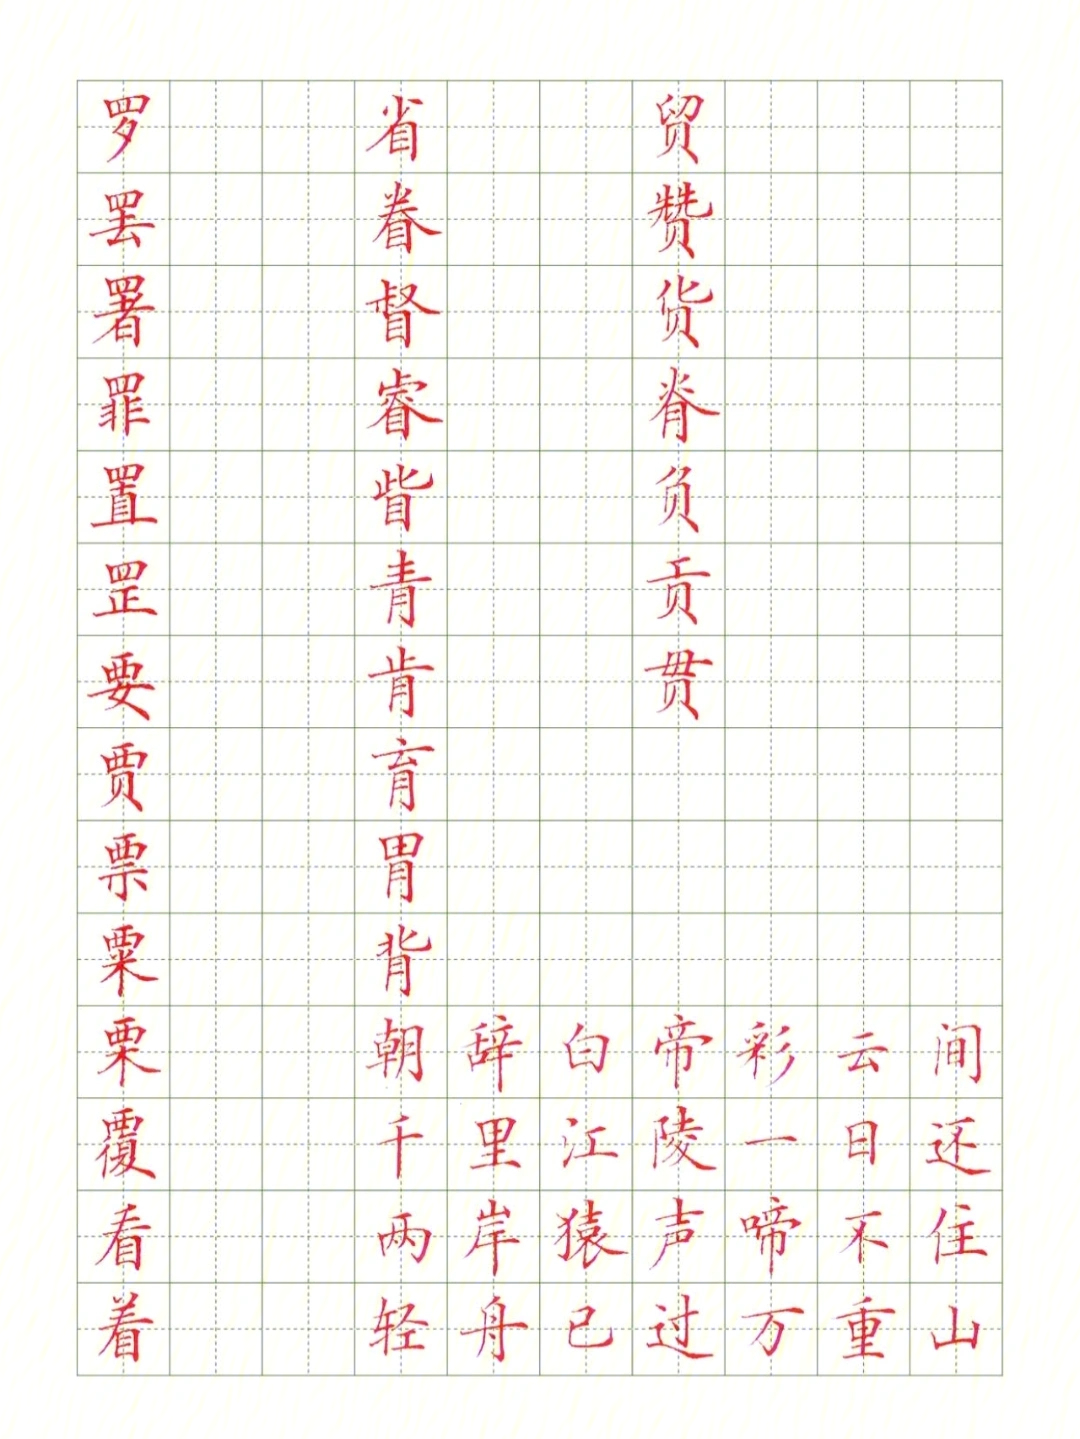 罗 省 贸
罢 眷 赞
署 督 货
罪 睿 脊
置 眥 负
罡 青 贡
要 肯 贯
贾 育
票 胃
粟 背
栗 朝 辞 白 帝 彩 云 间
覆 千 里 江 陵 一 日 还
看 两 岸 猿 声 啼 不 住
着 轻 舟 已 过 万 重 山